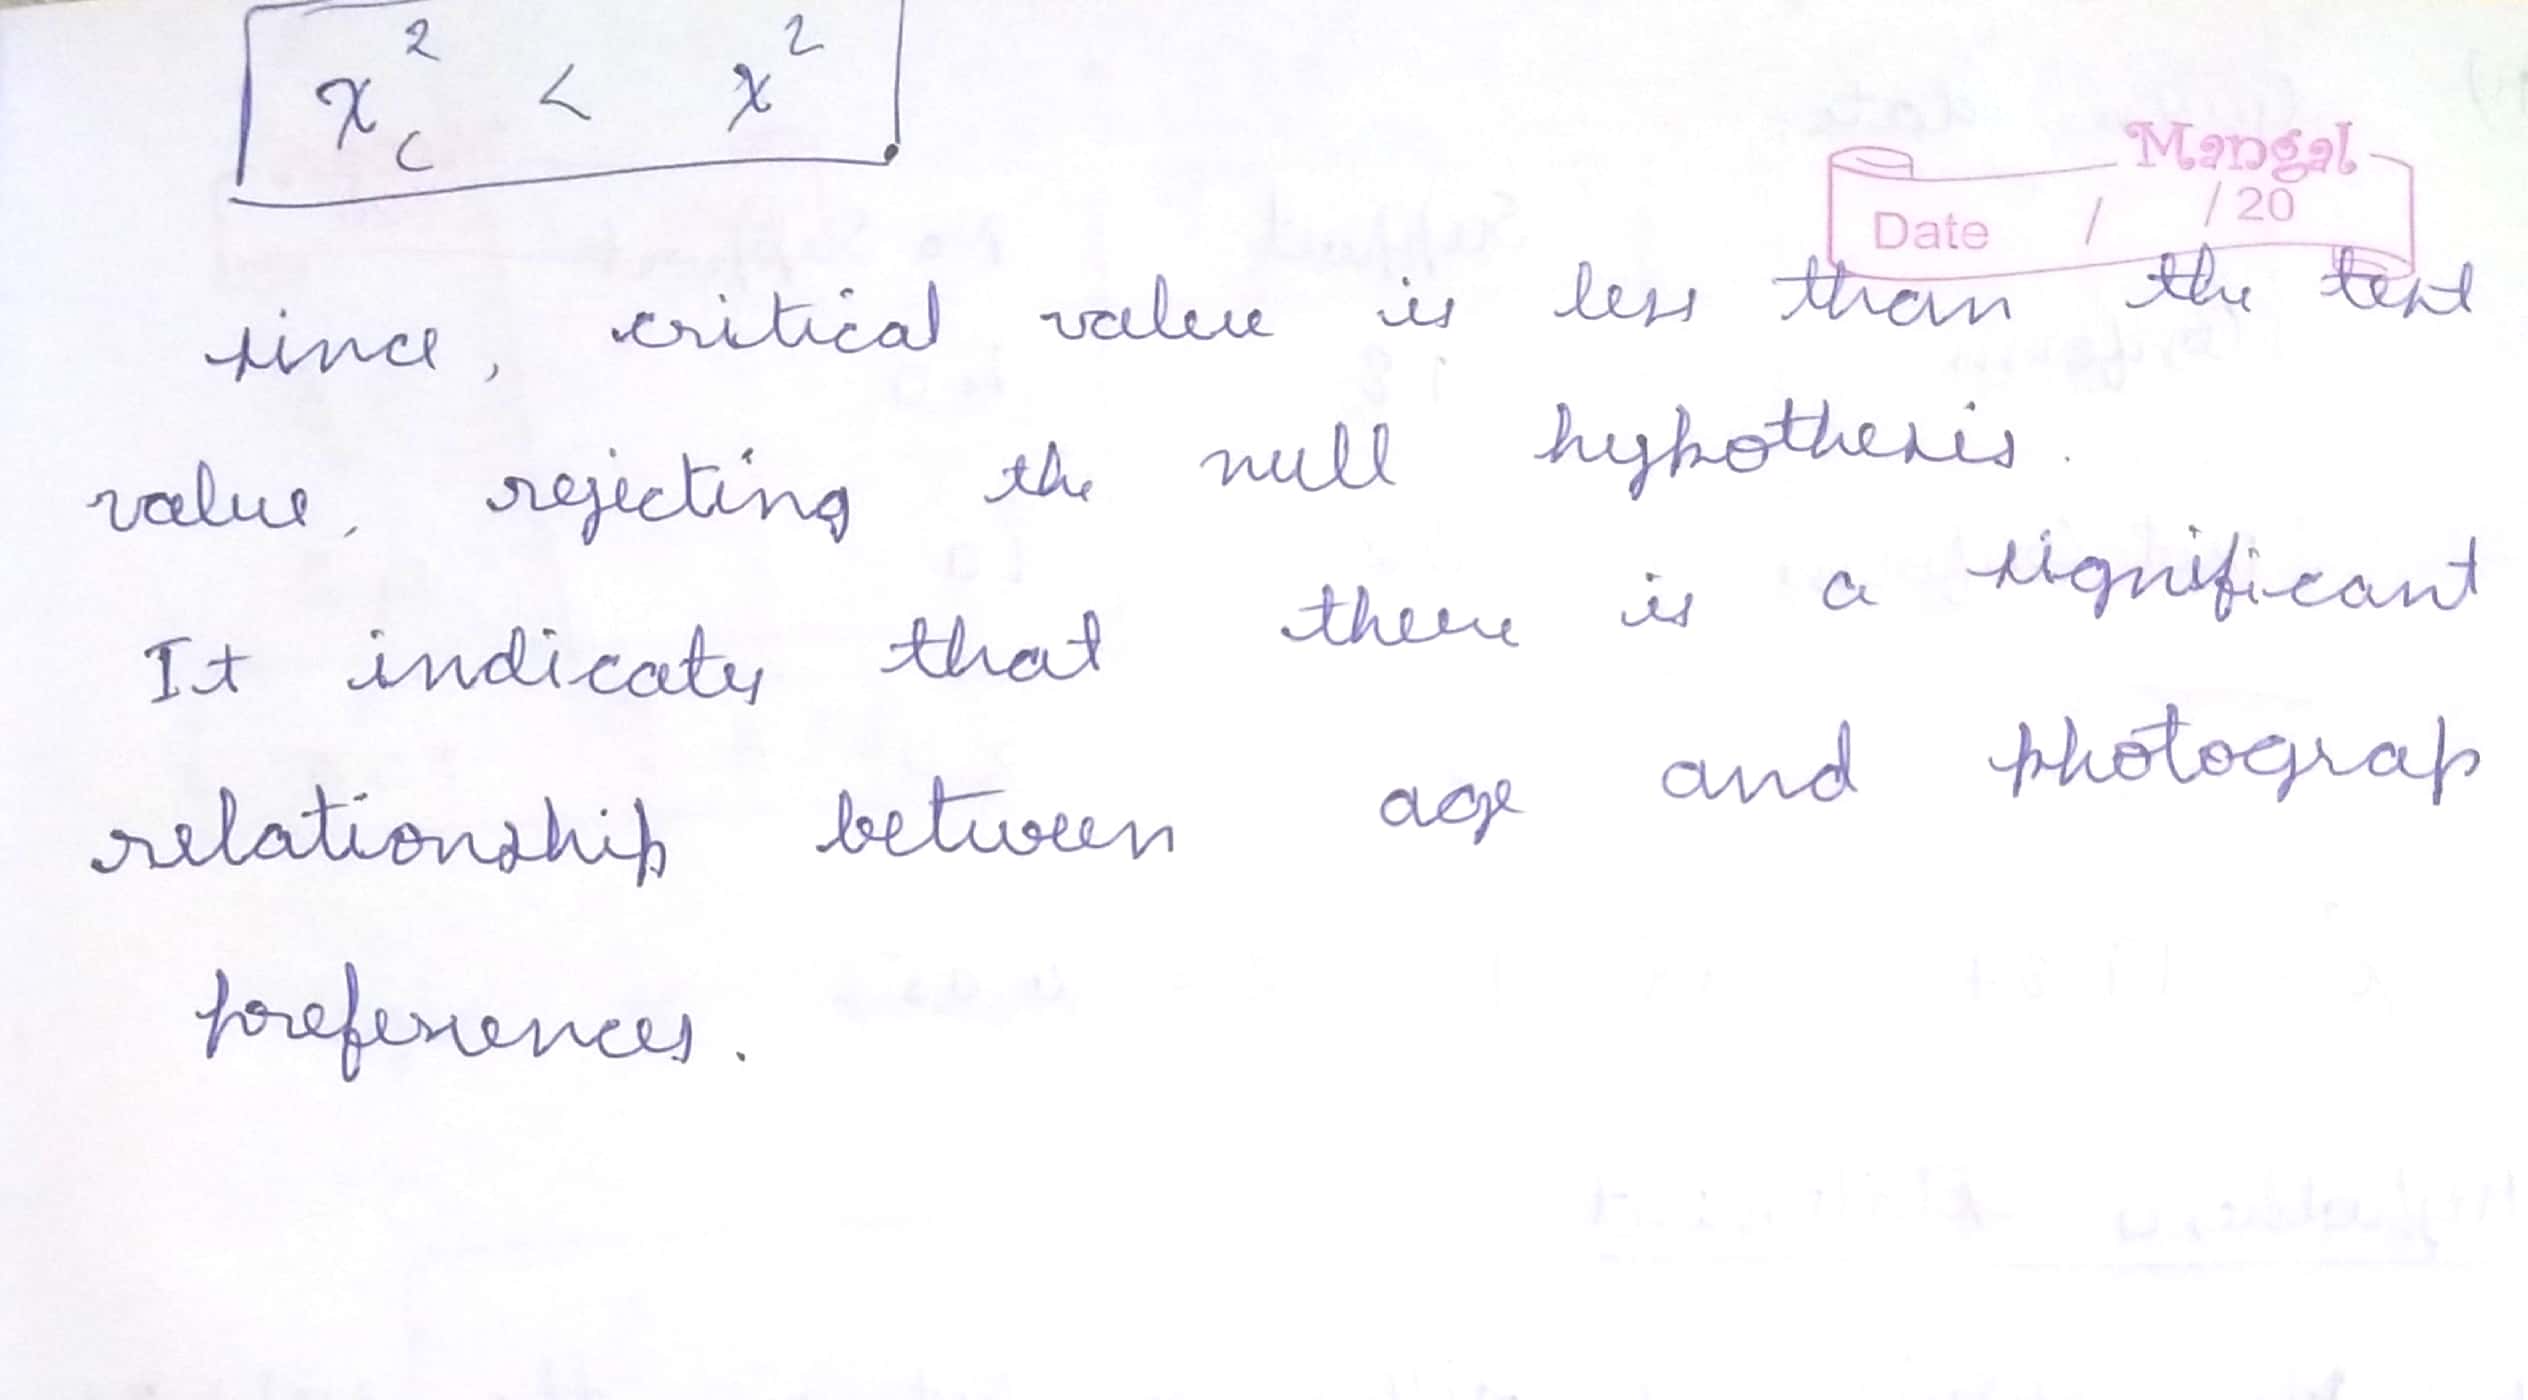 χ²c < χ²
Mangal
Date / /20
since, critical value is less than the test
value, rejecting the null hypothesis.
It indicates that there is a significant
relationship between age and photograp
preferences.